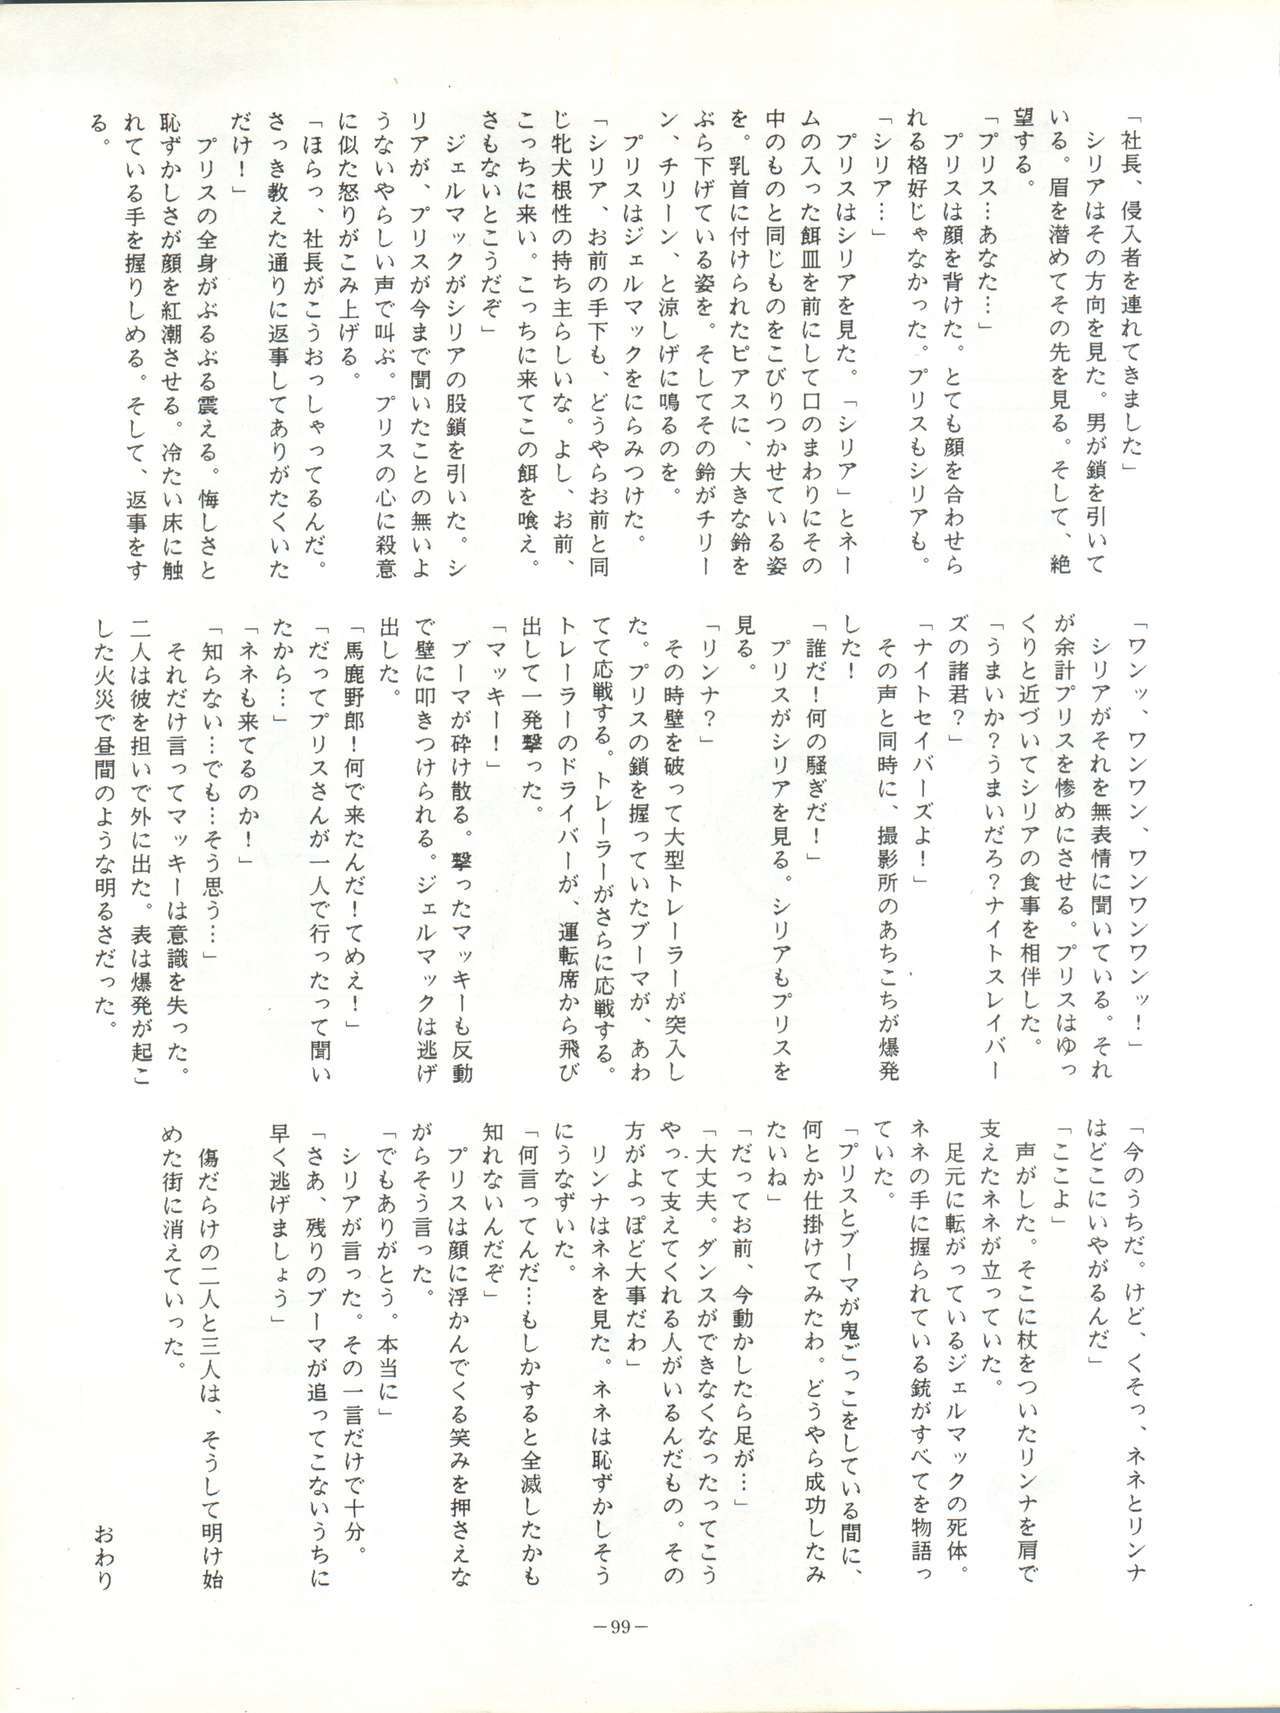 「社長、侵入者を連れてきました」
　シリアはその方向を見た。男が鎖を引いて
いる。眉を潜めてその先を見る。そして、絶
望する。
「プリス…あなた…」
　プリスは顔を背けた。とても顔を合わせら
れる格好じゃなかった。プリスもシリアも。
「シリア…」
　プリスはシリアを見た。「シリア」とネー
ムの入った餌皿を前にして口のまわりにその
中のものと同じものをこびりつかせている姿
を。乳首に付けられたピアスに、大きな鈴を
ぶら下げている姿を。そしてその鈴がチリー
ン、チリーン、と涼しげに鳴るのを。
　プリスはジェルマックをにらみつけた。
「シリア、お前の手下も、どうやらお前と同
じ牝犬根性の持ち主らしいな。よし、お前、
こっちに来い。こっちに来てこの餌を喰え。
さもないとこうだぞ」
　ジェルマックがシリアの股鎖を引いた。シ
リアが、プリスが今まで聞いたことの無いよ
うないやらしい声で叫ぶ。プリスの心に殺意
に似た怒りがこみ上げる。
「ほらっ、社長がこうおっしゃってるんだ。
さっき教えた通りに返事してありがたくいた
だけ！」
　プリスの全身がぶるぶる震える。悔しさと
恥ずかしさが顔を紅潮させる。冷たい床に触
れている手を握りしめる。そして、返事をす
る。
「ワンッ、ワンワン、ワンワンワンッ！」
　シリアがそれを無表情に聞いている。それ
が余計プリスを惨めにさせる。プリスはゆっ
くりと近づいてシリアの食事を相伴した。
「うまいか？うまいだろ？ナイトスレイバー
ズの諸君？」
「ナイトセイバーズよ！」
　その声と同時に、撮影所のあちこちが爆発
した！
「誰だ！何の騒ぎだ！」
　プリスがシリアを見る。シリアもプリスを
見る。
「リンナ？」
　その時壁を破って大型トレーラーが突入し
た。プリスの鎖を握っていたブーマが、あわ
てて応戦する。トレーラーがさらに応戦する。
トレーラーのドライバーが、運転席から飛び
出して一発撃った。
「マッキー！」
　ブーマが砕け散る。撃ったマッキーも反動
で壁に叩きつけられる。ジェルマックは逃げ
出した。
「馬鹿野郎！何で来たんだ！てめえ！」
「だってプリスさんが一人で行ったって聞い
たから…」
「ネネも来てるのか！」
「知らない…でも…そう思う…」
　それだけ言ってマッキーは意識を失った。
二人は彼を担いで外に出た。表は爆発が起こ
した火災で昼間のような明るさだった。
「今のうちだ。けど、くそっ、ネネとリンナ
はどこにいやがるんだ」
「ここよ」
　声がした。そこに杖をついたリンナを肩で
支えたネネが立っていた。
　足元に転がっているジェルマックの死体。
ネネの手に握られている銃がすべてを物語っ
ていた。
「プリスとブーマが鬼ごっこをしている間に、
何とか仕掛けてみたわ。どうやら成功したみ
たいね」
「だってお前、今動かしたら足が…」
「大丈夫。ダンスができなくなったってこう
やって支えてくれる人がいるんだもの。その
方がよっぽど大事だわ」
　リンナはネネを見た。ネネは恥ずかしそう
にうなずいた。
「何言ってんだ…もしかすると全滅したかも
知れないんだぞ」
　プリスは顔に浮かんでくる笑みを押さえな
がらそう言った。
「でもありがとう。本当に」
　シリアが言った。その一言だけで十分。
「さあ、残りのブーマが追ってこないうちに
早く逃げましょう」
　傷だらけの二人と三人は、そうして明け始
めた街に消えていった。
おわり
－99－